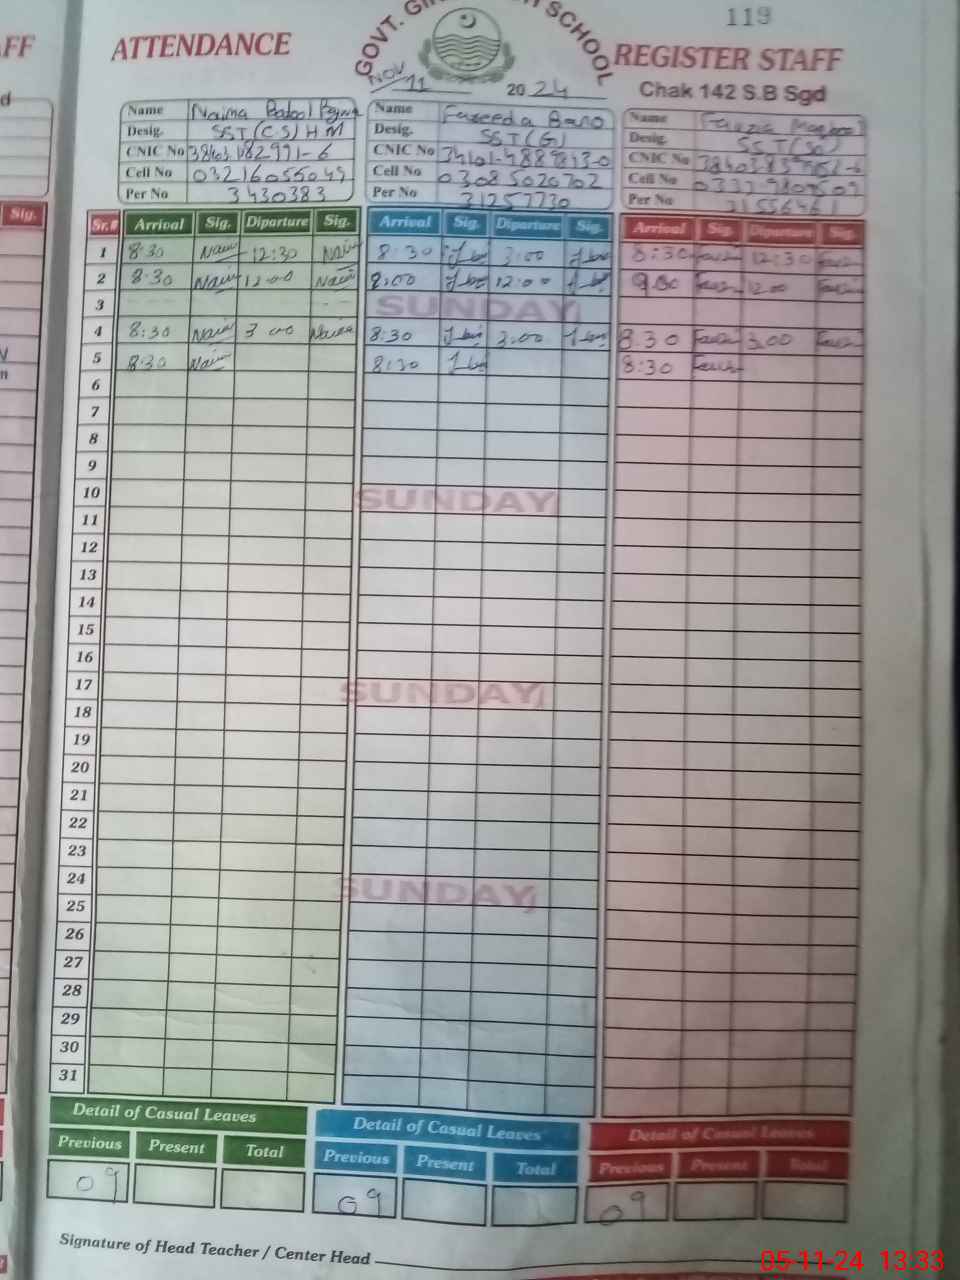 119
FF
ATTENDANCE
GOVT. GIRLS HIGH SCHOOL
REGISTER STAFF
NOV 11 2024
Chak 142 S.B Sgd
Name Naima Batool
Desig. SST (CS) H M
CNIC No
Cell No 03216055049
Per No 3430383
Name Fareeda Bano
Desig. SST (G)
CNIC No
Cell No 03085020702
Per No 31257730
Name Fauzia
Desig.
CNIC No
Cell No
Per No
Sig.
Sr.# Arrival Sig. Diparture Sig. Arrival Sig. Diparture Sig. Arrival Sig. Diparture Sig.
1 8:30 12:30 8:30 3:00 8:30 12:30
2 8:30 12:00 8:00 12:00 12:00
3 SUNDAY
4 8:30 3:00 8:30 3:00 8:30 3:00
5 8:30 8:30 8:30
6
7
8
9
10 SUNDAY
11
12
13
14
15
16
17 SUNDAY
18
19
20
21
22
23
24 SUNDAY
25
26
27
28
29
30
31
Detail of Casual Leaves Detail of Casual Leaves Detail of Casual Leaves
Previous Present Total Previous Present Total Previous Present Total
09 09 09
Signature of Head Teacher / Center Head
05-11-24 13:33